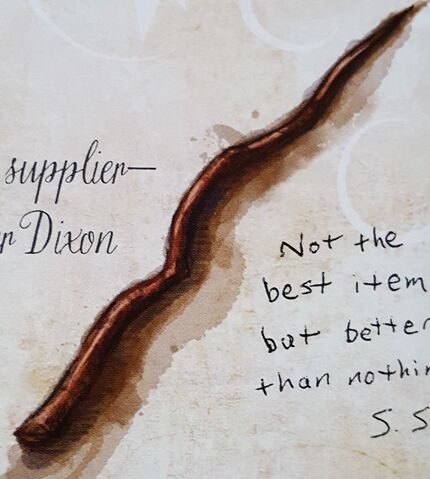 supplier—
r Dixon
Not the
best item
but better
than nothin
S. S